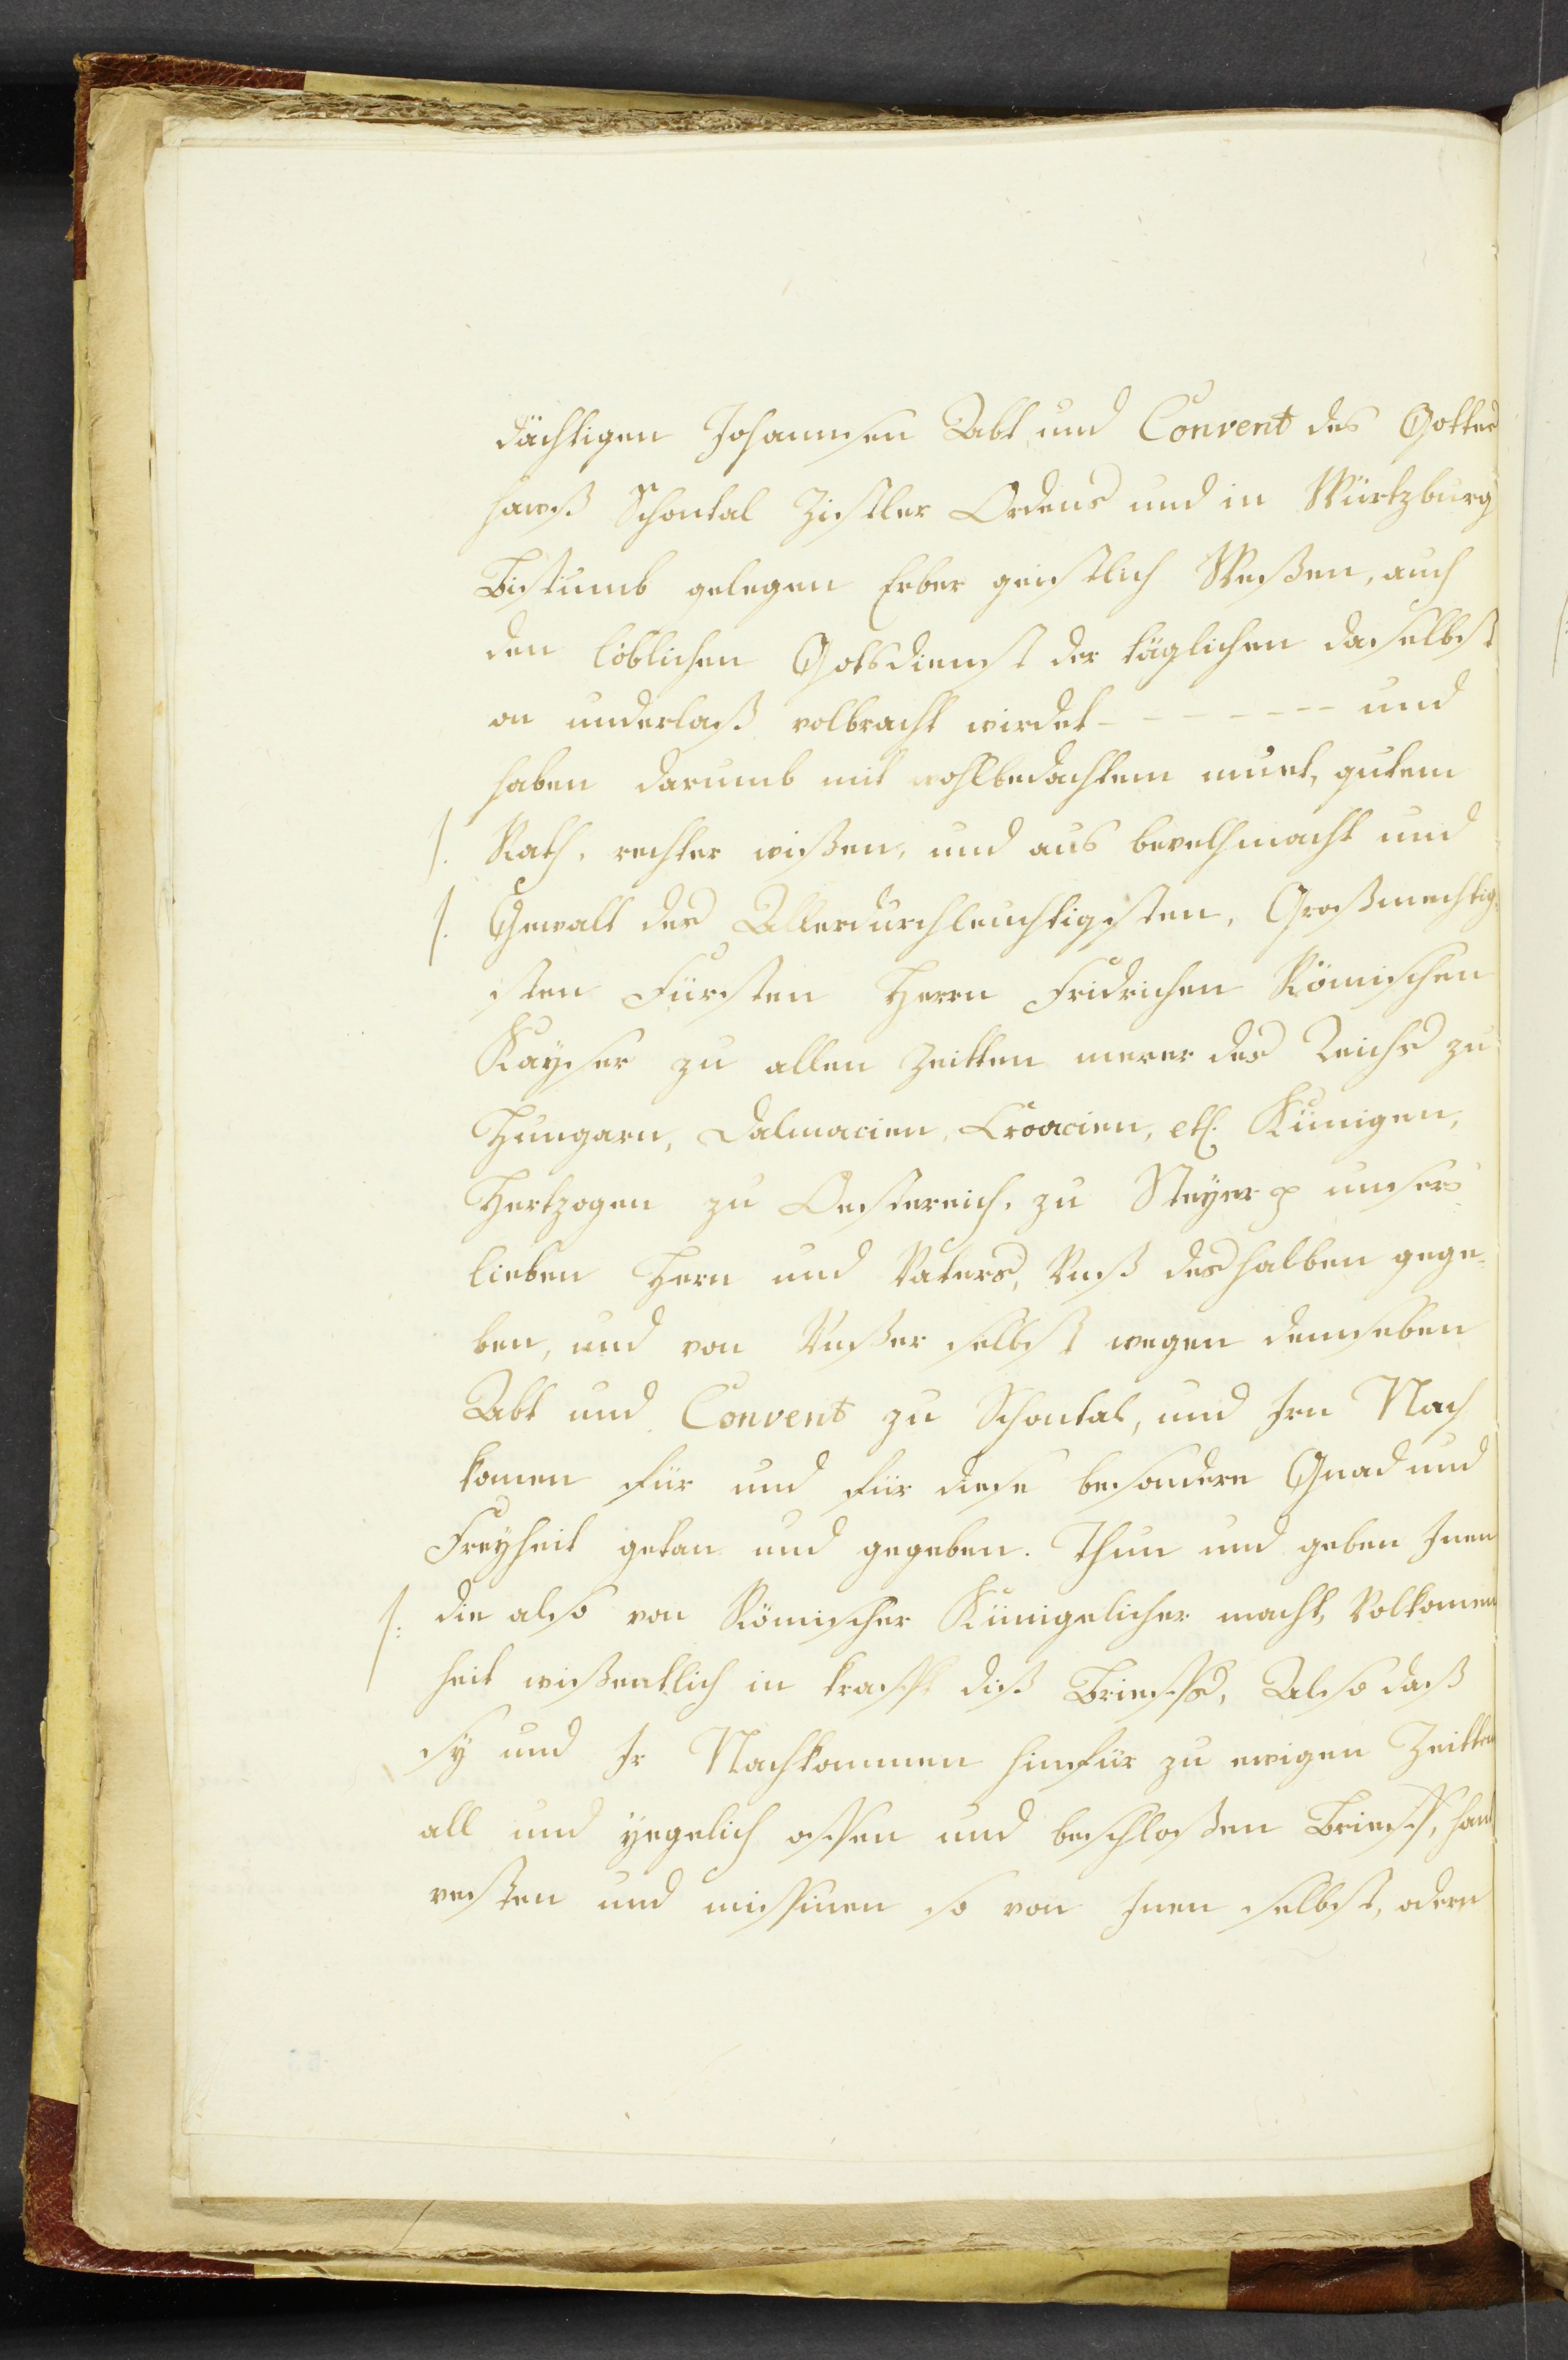 dächtigen Johannsen Abt und Convent des Gottes
hawß Schontal Zistler Ordens und in Würtzburg
Bistumb gelegen Erber geistlich Weßen, auch
den löblichen Gotsdienst der täglichen daselbst
on underlaß volbracht wirdet - - - - - - - und
haben darumb mit wohlbedachtem muet, gutem
/. Rath, rechter wißen, und aus bevelhmacht und
/. Gewalt des Allerdurchleuchtigsten, Großmechtig-
sten Fürsten Herrn Fridrichen Römischen
Kayser zu allen Zeitten merer des Reichs zu
Hungarn, Dalmacien, Croacien, etc. Künigen,
Hertzogen zu Oestereich, zu Steyer p unsers
lieben Hern und Vaters, Unß deshalben gege-
ben, und von Unßer selbst wegen denselben
Abt und Convent zu Schontal, und Irn Nach
komen für und für diese besondere Gnad und
Freyheit getan und gegeben. Thun und geben Inen
/: die also von Römischer Künigelicher macht, Volkomen
heit wißentlich in krafft diß Brieffs, Also daß
sy und Ir Nachkommen hinfür zu ewigen Zeitten
all und yegelich offen und beschloßen Brieff, hant
vesten und missiven so von Inen selbst, odern